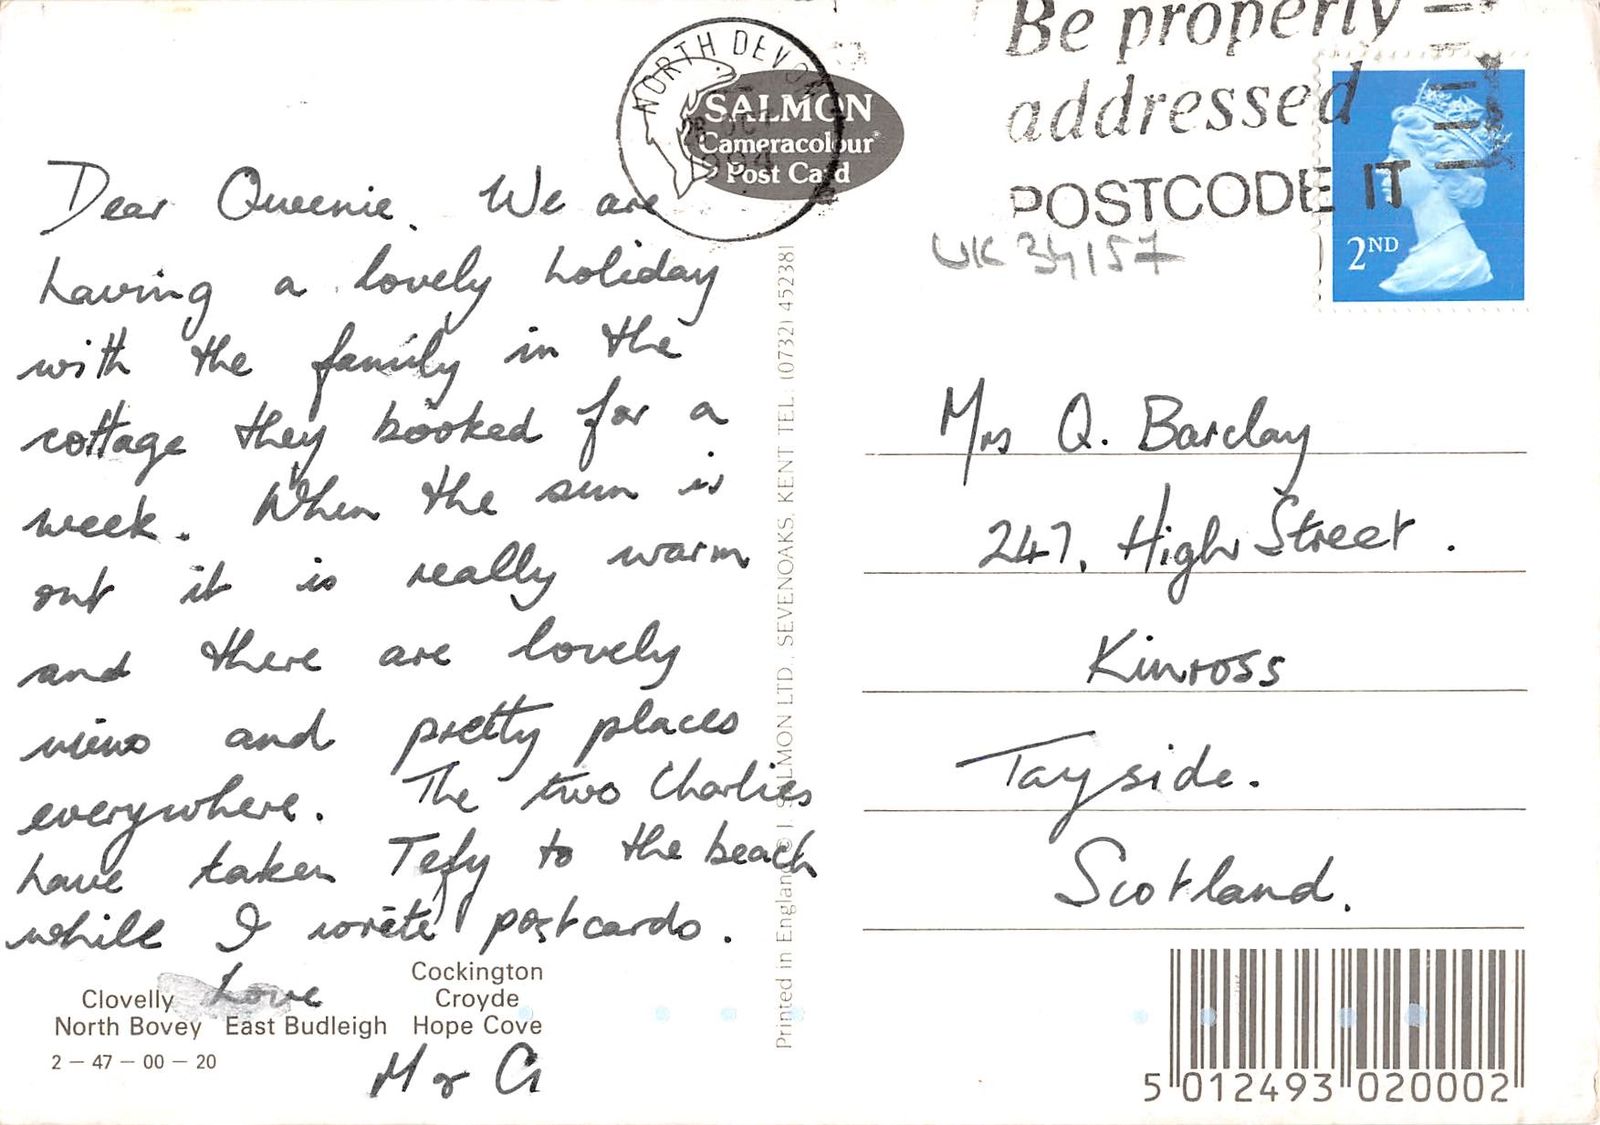 Be properly
addressed
POSTCODE IT
NORTH DEVON
1994
SALMON
Cameracolour
Post Card
2ND
UK 34157
Dear Queenie. We are
having a lovely holiday
with the family in the
cottage they booked for a
week. When the sun is
out it is really warm
and there are lovely
views and pretty places
everywhere. The two Charlies
have taken Tefy to the beach
while I wrete postcards.
Love
M & C
Clovelly
North Bovey
East Budleigh
Cockington
Croyde
Hope Cove
2 – 47 – 00 – 20
Printed in England © J. SALMON LTD., SEVENOAKS, KENT TEL: (0732) 452381
Mrs Q. Barclay
247, High Street.
Kinross
Tayside.
Scotland.
5 012493 020002